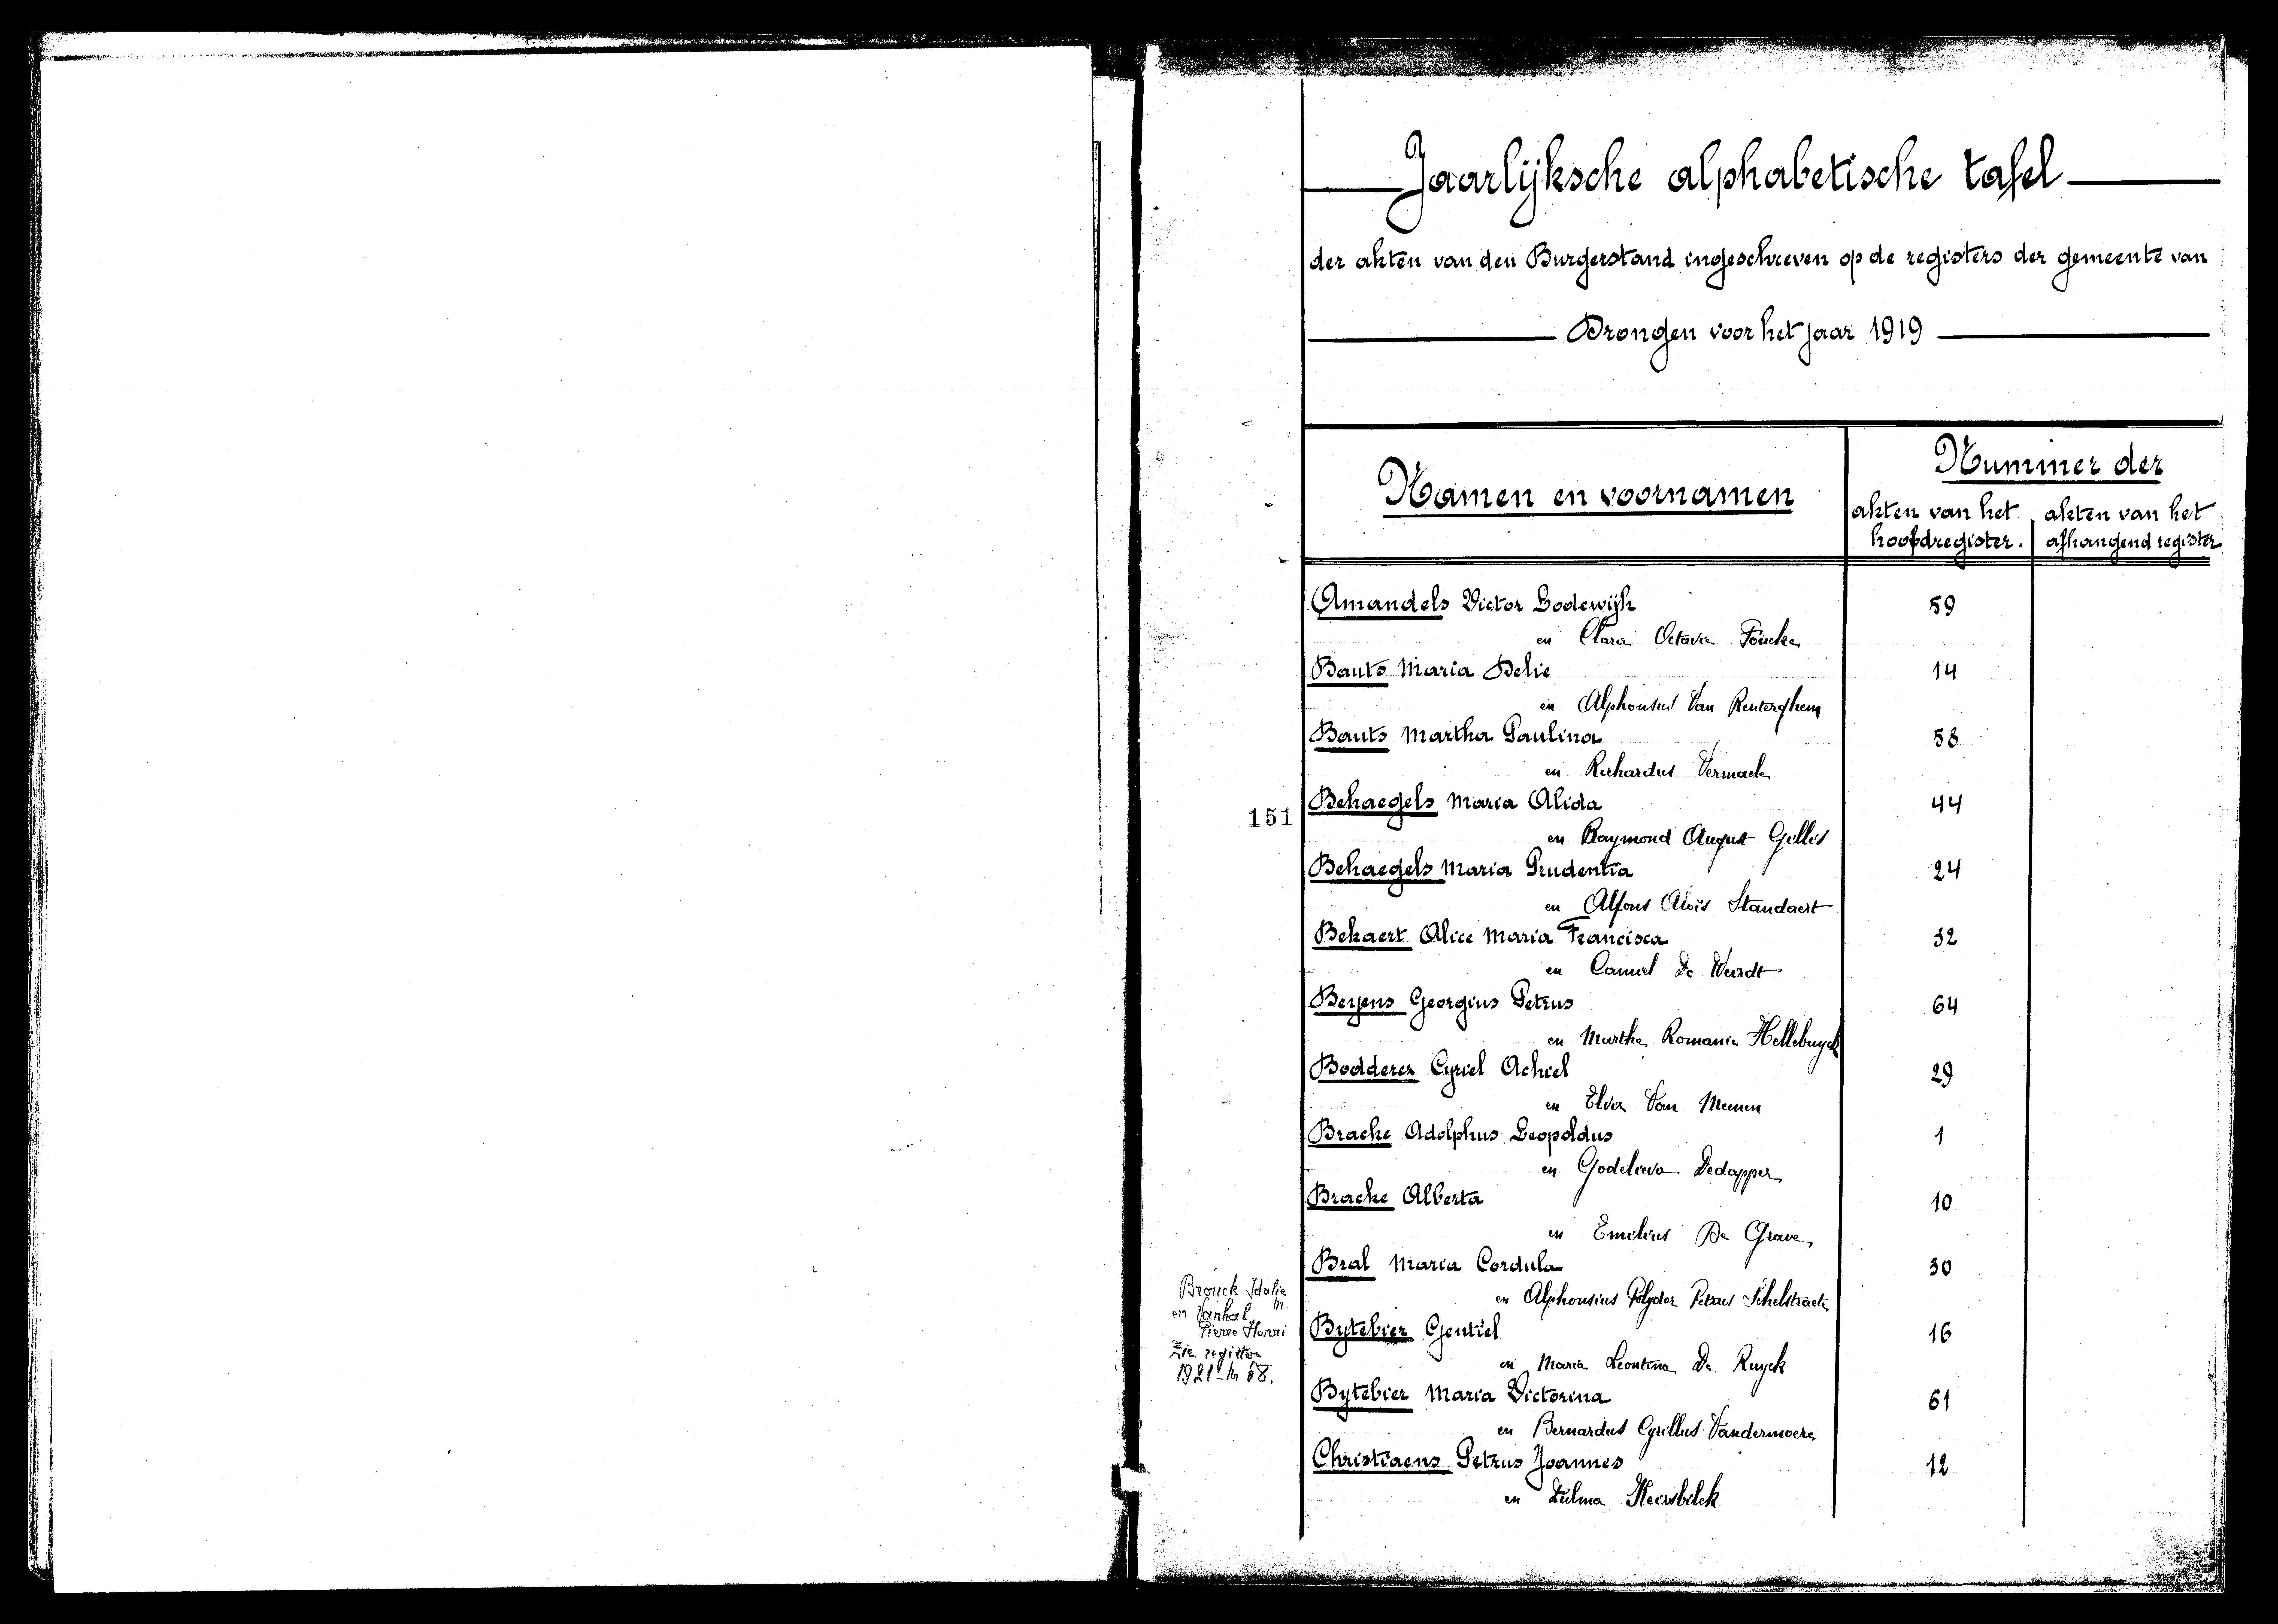 Jaarlijksche alphabetische tafel
der akten van den Burgerstand ingeschreven op de registers der gemeente van
Drongen voor het jaar 1919
Namen en voornamen
Nummer der
akten van het hoofdregister.
akten van het afhangend register
Amandels Victor Lodewijk 59
en Clara Octavie
Bauts Maria Delie 14
en Alphonsus Van Renterghem
Bauts Martha Paulina 58
en Richardus
151
Behaegels Maria Alida 44
en Raymond August Gillis
Behaegels Maria Prudentia 24
en Alfons Aloïs Standaert
Bekaert Alice Maria Francisca 32
en Camiel De Weirdt
Beyens Georgius Petrus 64
en Martha Romanie Hellebuyck
Bodderez Cyriel Achiel 29
en Elvira Van Meenen
Bracke Adolphus Leopoldus 1
en Godelieva Dedapper
Bracke Alberta 10
en Emilius De Grave
Bral Maria Cordula 30
en Alphonsius Polydor Petrus Schelstraete
Brouck Idalie M.
en Vanhal
Pierre Henri
Zie register
1921 - Nr 68.
Bytebier Gentiel 16
en Maria Leontina De Ruyck
Bytebier Maria Victorina 61
en Bernardus Cyrillus Vandermoere
Christiaens Petrus Joannes 12
en Zulma Heirsbilck